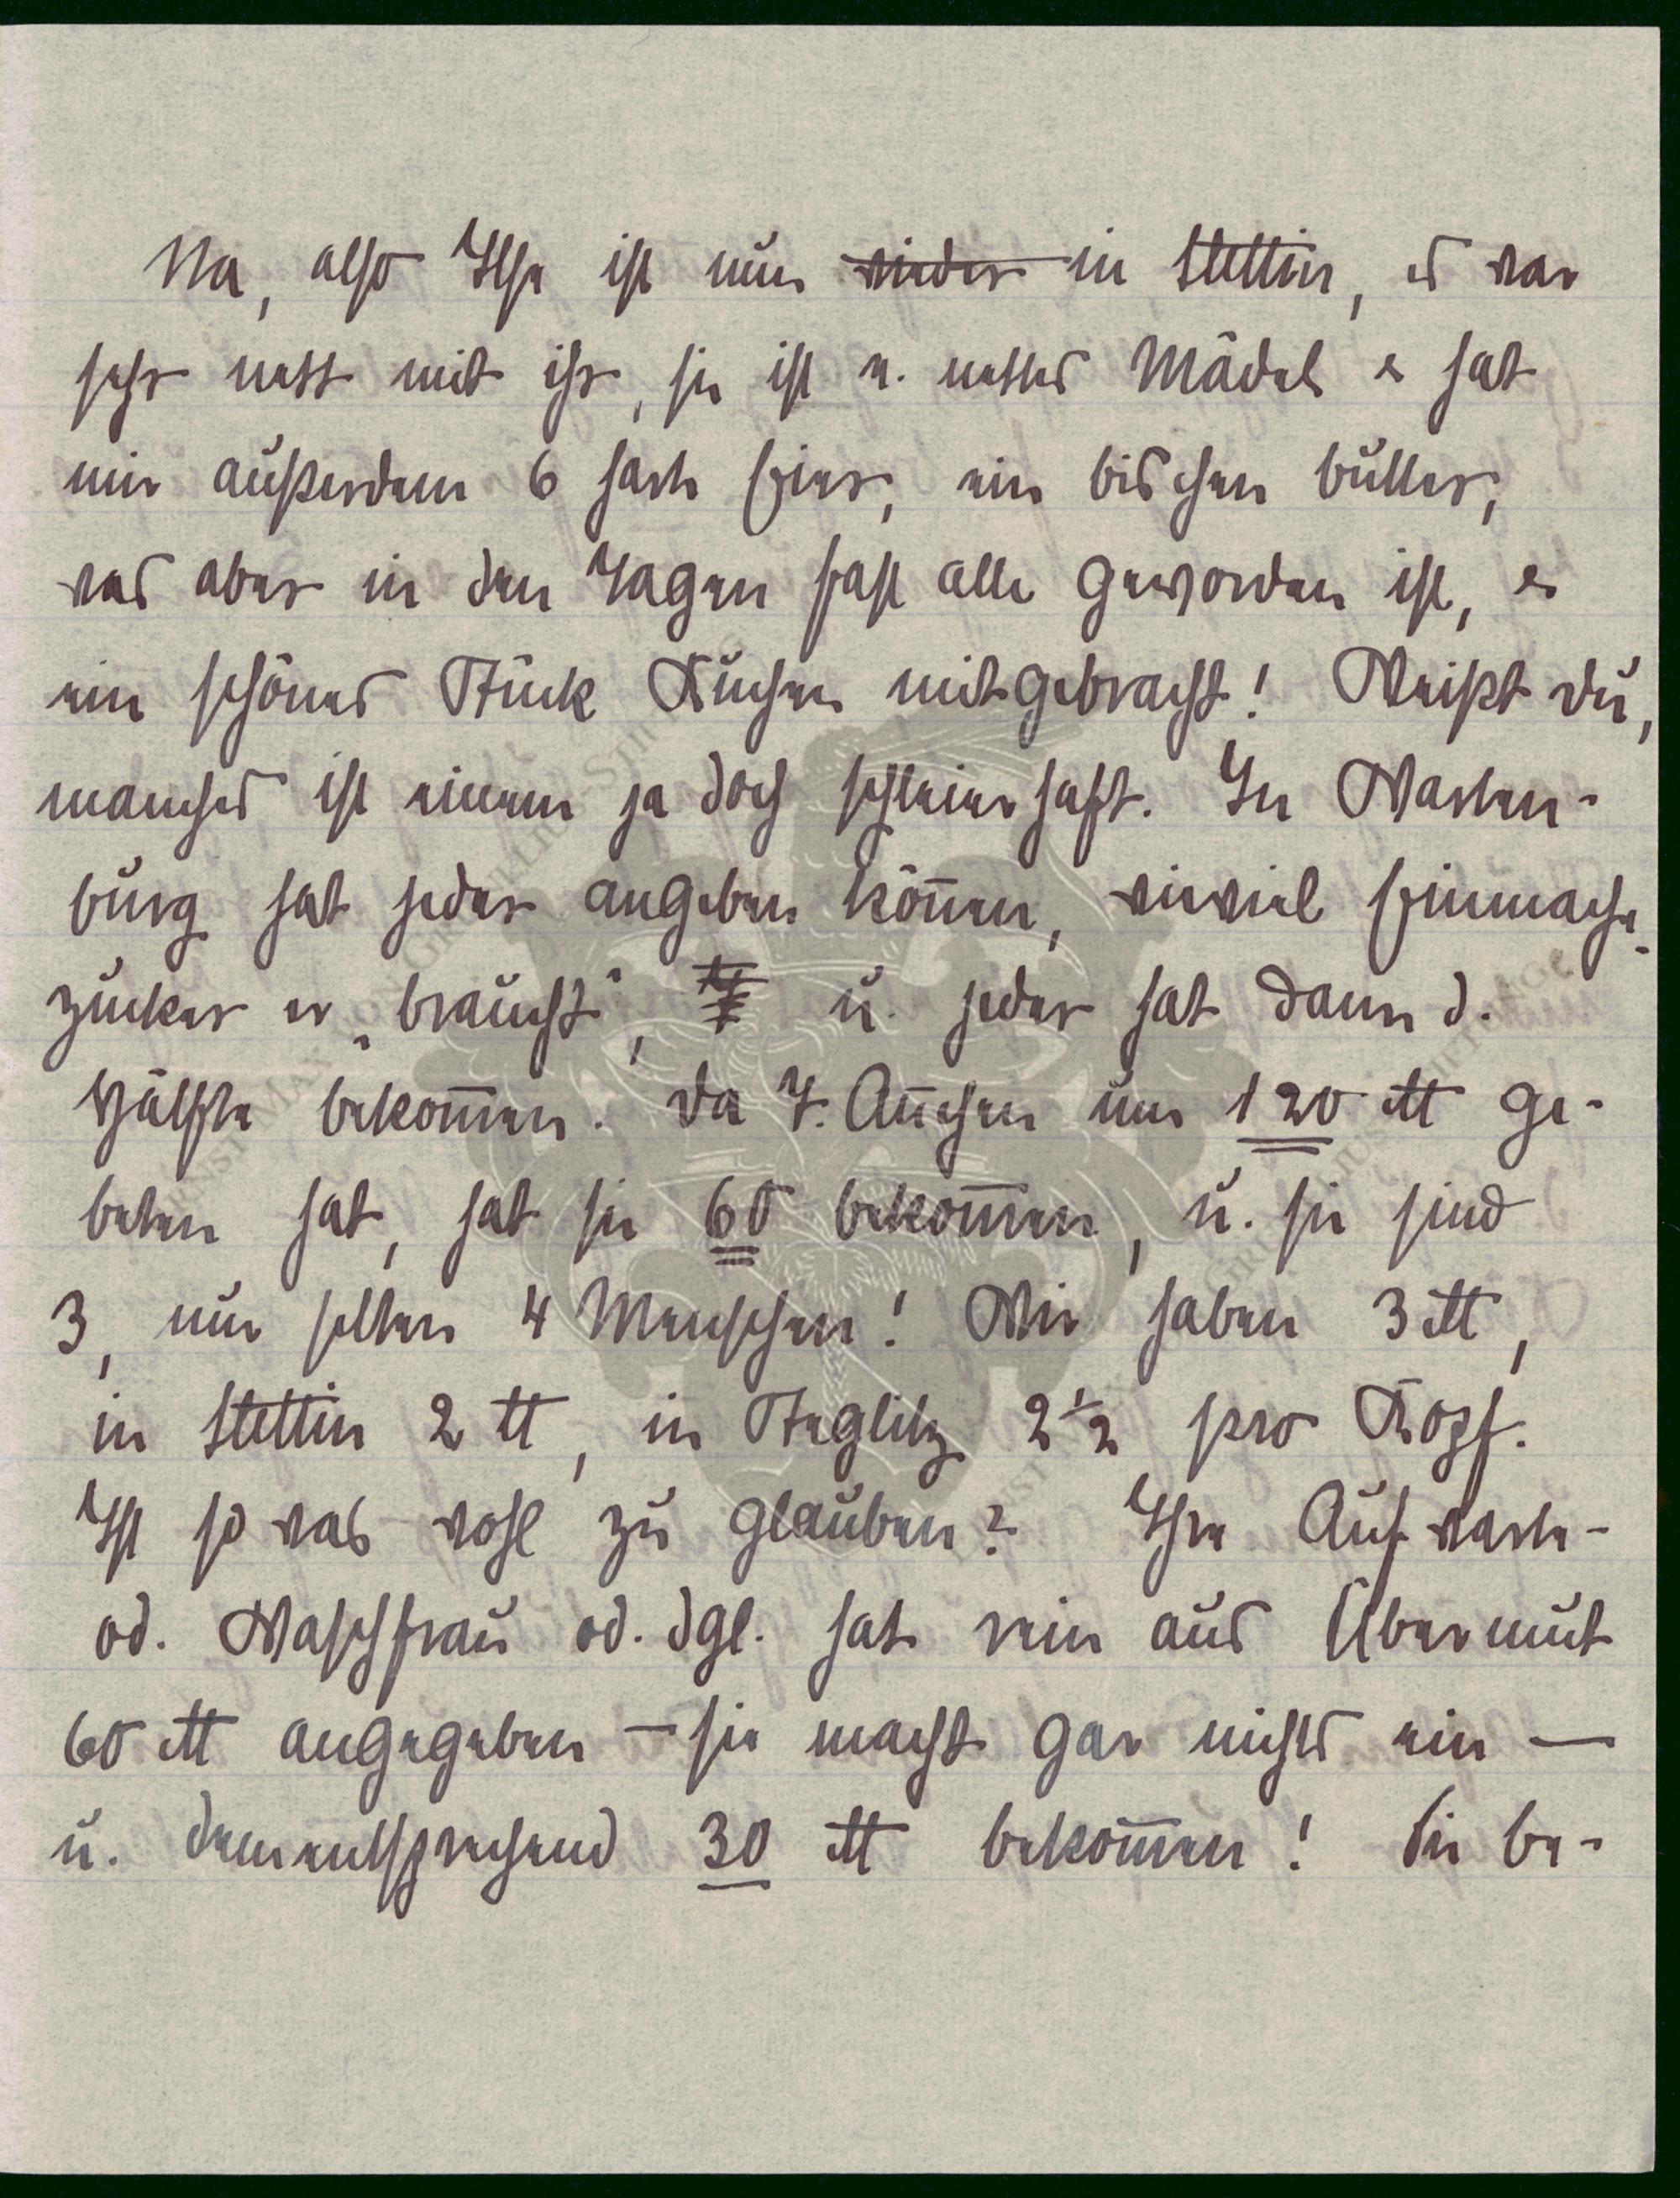 Na, also Ilse ist nun wieder in Stettin, es war
sehr nett mit ihr, sie ist e. nettes Mädel & hat
mir außerdem 6 harte Eier, ein bischen Butter,
was aber in den Tagen fast alle geworden ist, &
ein schönes Stück Kuchen mitgebracht! Weißt du,
manches ist einem ja doch schleierhaft. In Warten-
burg hat jeder angeben können, wieviel Einmache-
zucker er „braucht“, u. jeder hat dann d.
Hälfte bekommen. Da T. Annchen um 120 ℔ ge-
beten hat, hat sie 60 bekommen, u. sie sind
3, nur selten 4 Menschen! Wir haben 3 ℔,
in Stettin 2 ℔, in Steglitz 2½ pro Kopf.
Ist so was wohl zu glauben? Ihre Aufwarte-
od. Waschfrau od. dgl. hat rein aus Übermut
60 ℔ angegeben – sie macht gar nichts ein –
u. dementsprechend 30 ℔ bekommen! Sie be-